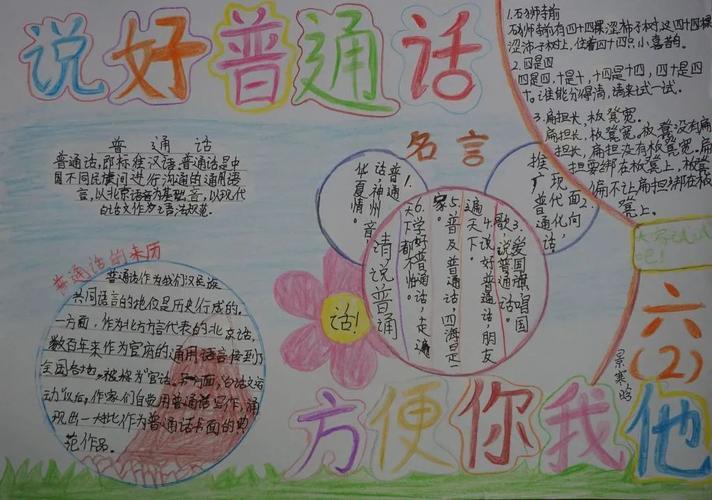 说好普通话
普通话
普通话,即标准汉语,普通话是中
国不同民族间进行沟通的通用语
言,以北京语音为基础音,以现代
白话文作为语法规范。
普通话的来历
普通话作为我们汉民族
共同语言的地位是历史行成的。
一方面,作为北方方言代表的北京话,
数百年来作为官府的通用语言接到了
全国各地,被称为"官话。另一方面,白话文运
动"以后,作家们自觉用普通话写作,涌
现出一大批作为普通话书面的典
范作品。
名言
1.普通
话,神州音,
华夏情。
2.现代化,
推广普通话,
面向
3.爱国旗,唱国
歌,说普通话。
4.说好普通话,朋友
遍天下。
5.普及普通话,四海是一
家。
6.学好普通话,走遍
天下都不怕。
请说普通
话!
1.石狮寺前
石狮寺前有四十四棵涩柿子树,这四十四棵
涩柿子树上,住着四十四只小喜鹊。
2.四是四
四是四,十是十,十四是十四,四十是四
十。谁能分得清,请来试一试。
3.扁担长,板凳宽。
扁担长,板凳宽。板凳没有扁
担长,扁担没有板凳宽。扁
担要绑在板凳上,板凳
偏不让扁担绑在板
凳上。
大家试试
吧!
六
(2)
景寒晗
方便你我他